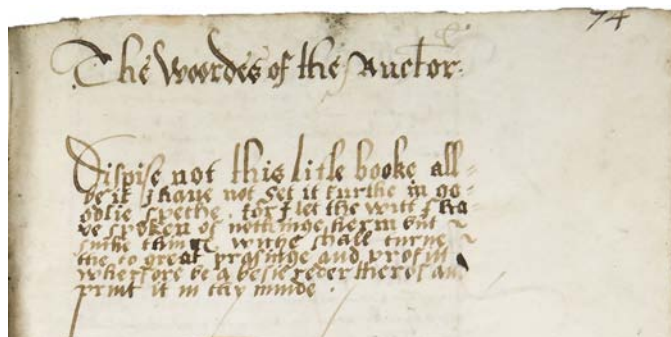 74
The Woordes of the Auctor.
Dispise not this litle booke all=
be it I haue not set it furthe in go=
odlie speche. for I let the witt I ha
ve spoken of nothinge herin but
suche thing wiche shall turne
the to great prasinge and profitt
wherfore be a besie reder therof an
print it in thy minde.